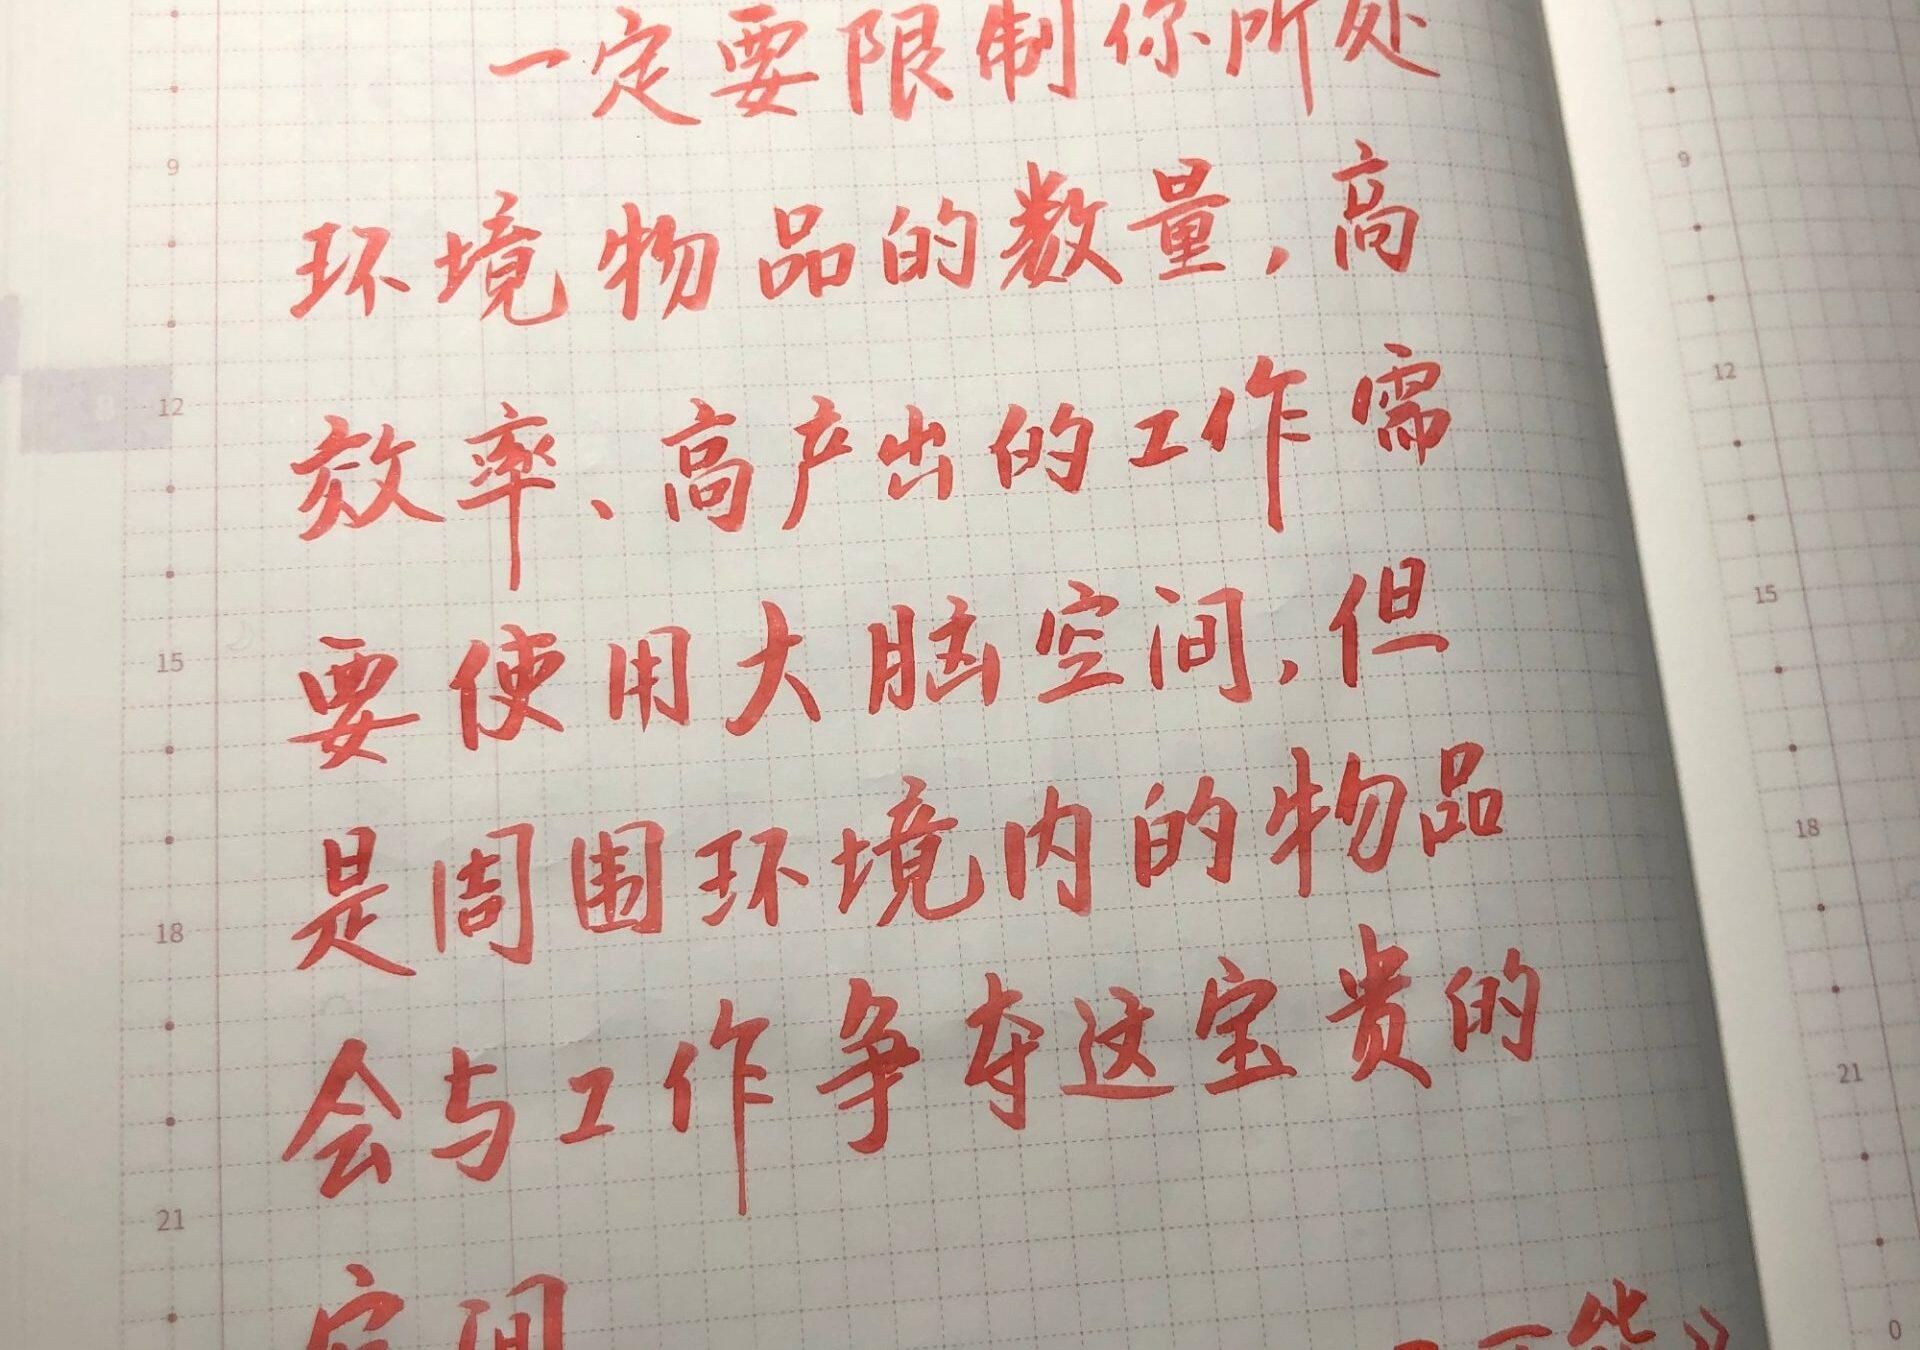 一定要限制你所处
环境物品的数量,高
效率、高产出的工作需
要使用大脑空间,但
是周围环境内的物品
会与工作争夺这宝贵的
空间
能》
9
12
15
18
21
9
12
15
18
21
0
8